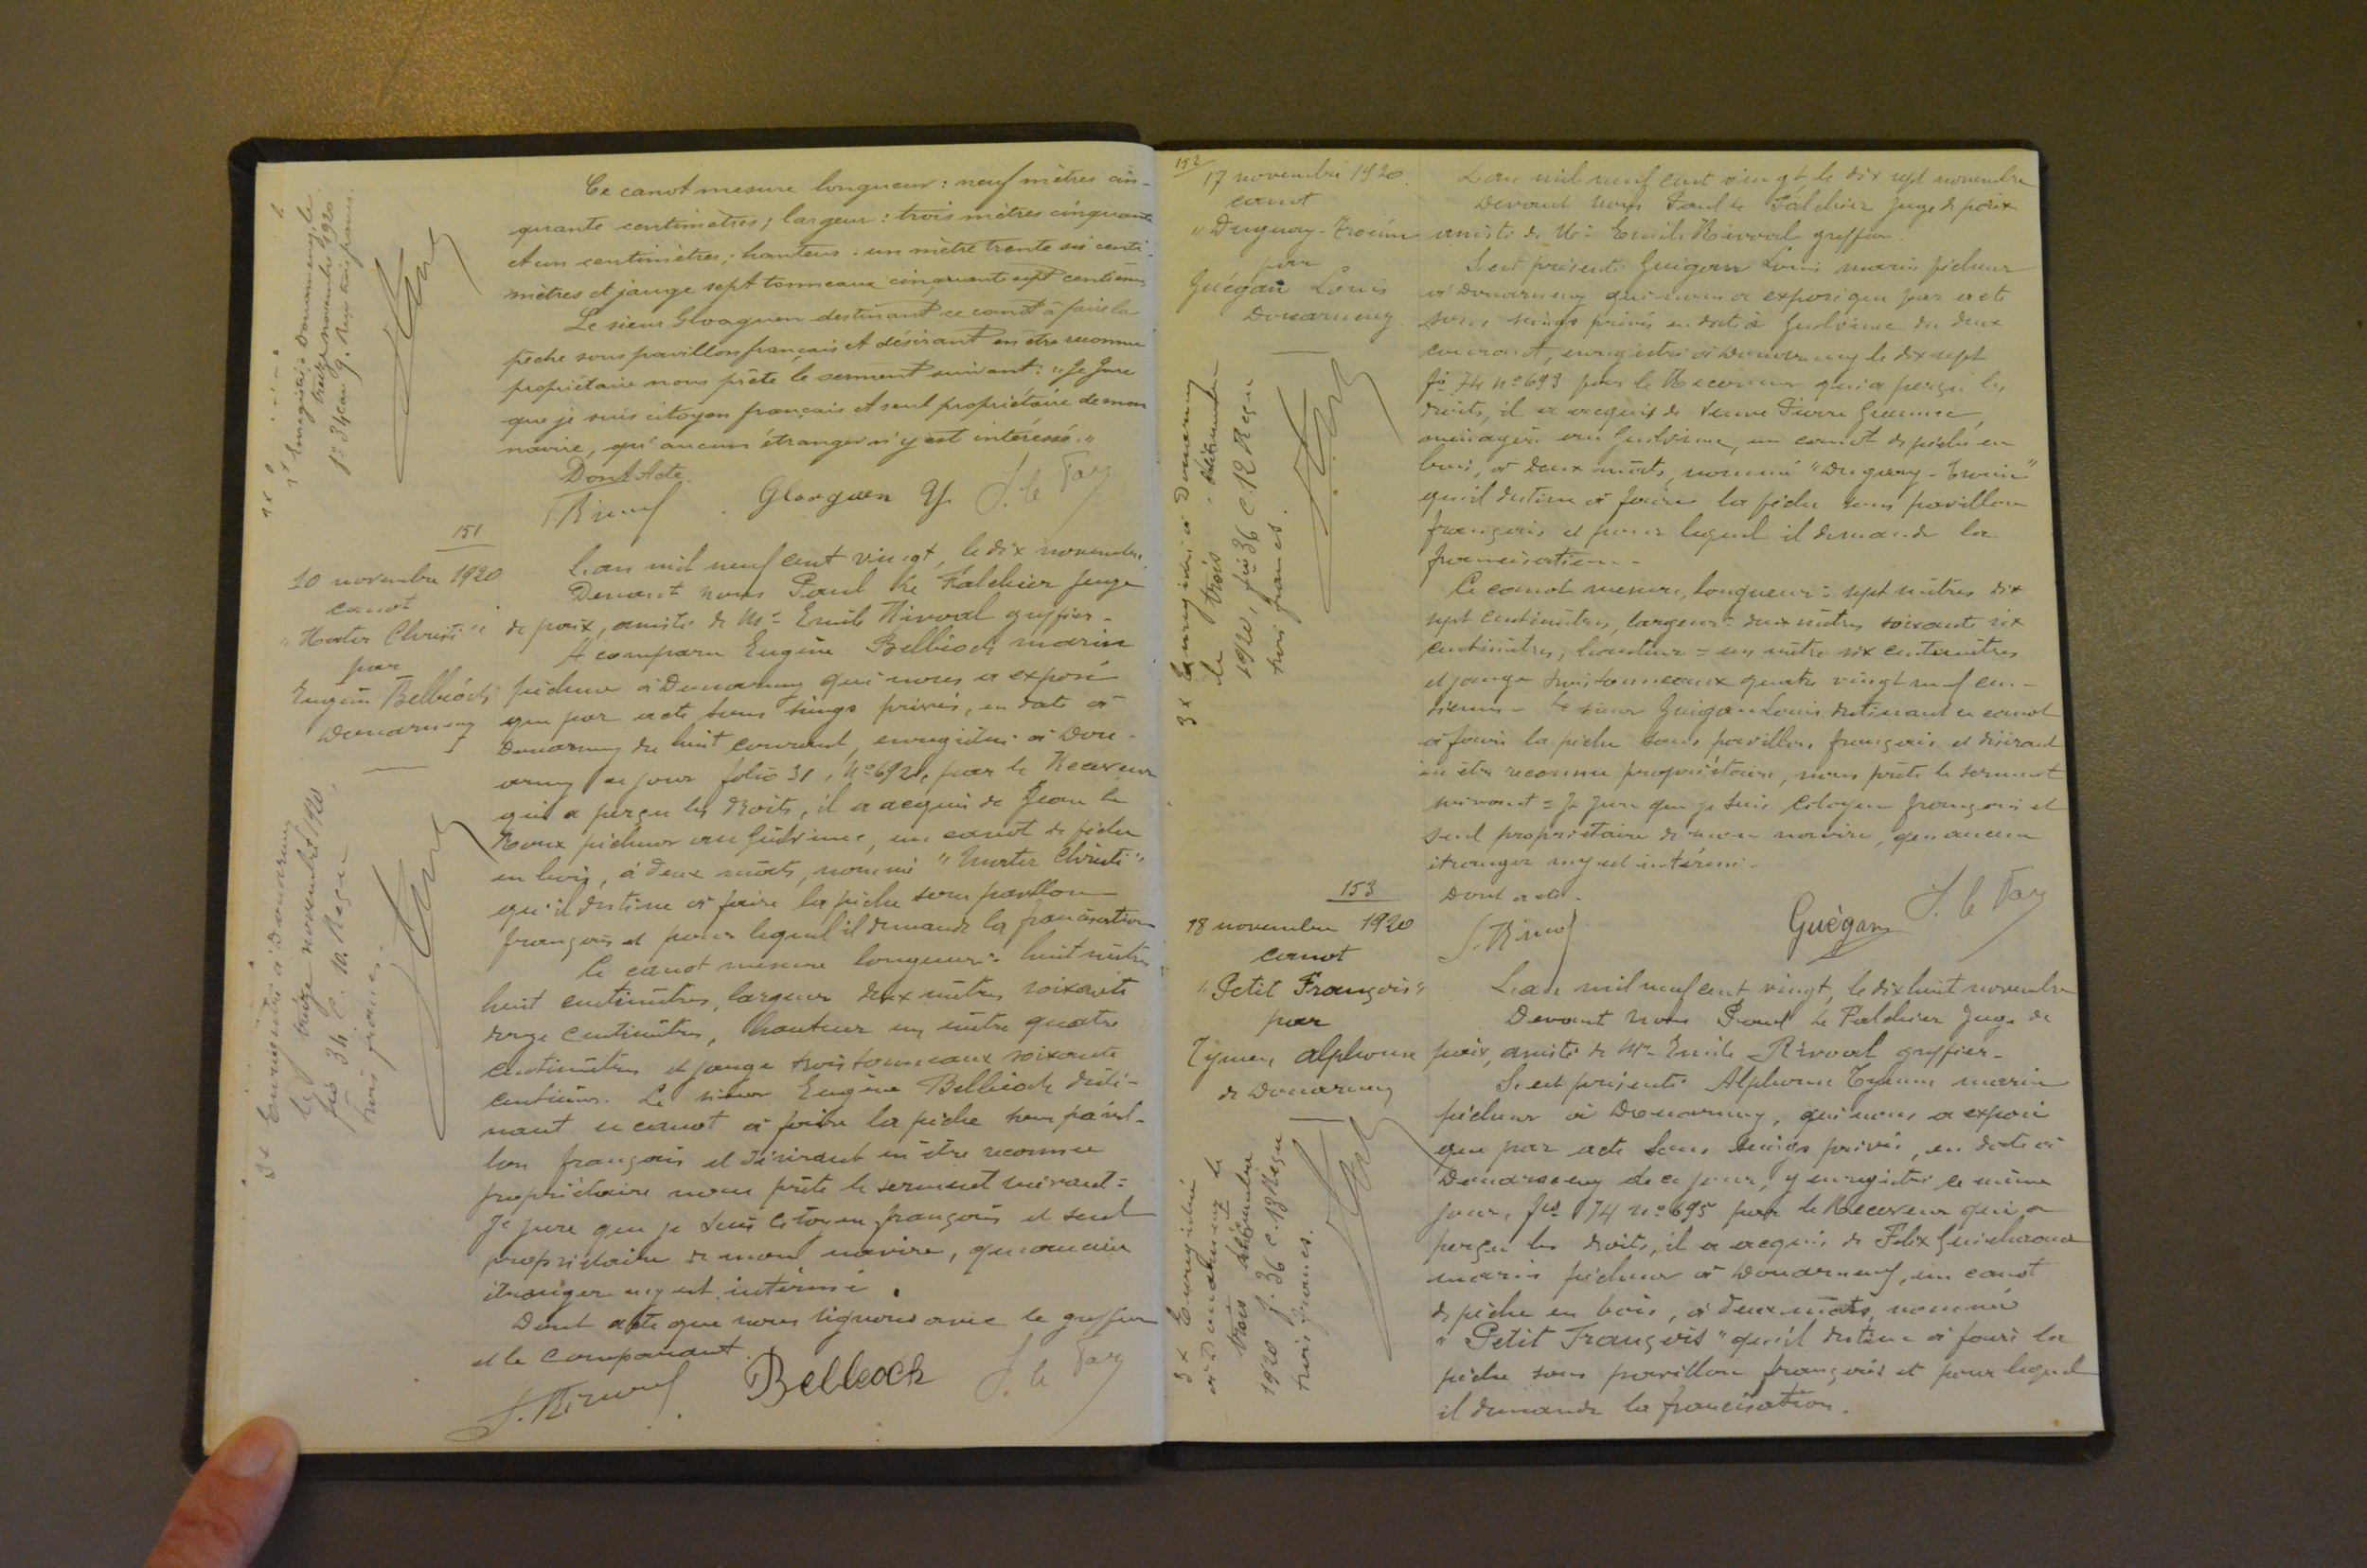 Ce canot mesure longueur : neuf mètres cin-
quante centimètres ; largeur : trois mètres cinquante
et un centimètres ; hauteur : un mètre trente six centi-
mètres et jauge sept tonneaux cinquante sept centièmes
Le sieur Gloaguen destinant ce canot à faire la
pêche sous pavillon français et désirant en être reconnu
propriétaire nous prête le serment suivant : "Je Jure
que je suis citoyen français et seul propriétaire de mon
navire, qu'aucun étranger n'y est intéressé."
Dont Acte.
Gloaguen Y
Enregistré à Douarnenez, le
treize novembre 1920
fo 34 case 9. Reçu trois francs.
151
10 novembre 1920
canot
"Mater Christi"
par
Eugène Belléoch
Douarnenez
3 x Enregistré à Douarnenez
le treize novembre 1920,
fo 34 C. 10. Reçu
trois francs.
L'an mil neuf cent vingt, le dix novembre,
Devant nous Paul Le Falchier Juge
de paix, assisté de Me Emile Rivoal greffier.
A comparu Eugène Belléoch marin
pêcheur à Douarnenez qui nous a exposé
que par acte sous seings privés, en date à
Douarnenez du huit courant, enregistré à Doua-
arnez ce jour folio 31, No 692, par le Receveur
qui a perçu les droits, il a acquis de Jean Le
Roux pêcheur au Guilvinec, un canot de pêche
en bois, à deux mâts, nommé "Mater Christi"
qu'il destine à faire la pêche sous pavillon
français et pour lequel il demande la francisation
Ce canot mesure longueur : huit mètres
huit centimètres, largeur deux mètres soixante
centimètres, hauteur un mètre quatre
centimètres et jauge trois tonneaux soixante
centièmes. Le sieur Eugène Belléoch desti-
nant ce canot à faire la pêche sous pavil-
lon français et désirant en être reconnu
propriétaire nous prête le serment suivant :
Je jure que je suis citoyen français et seul
propriétaire de mon navire, qu'aucun
étranger n'y est intéressé.
Dont acte que nous signons avec le greffier
et le comparant.
E. Rivoal Belléoch
152
17 novembre 1920.
canot
"Duguay-Trouin
par
Guégan Louis
Douarnenez
3 x Enregistré à Douarnenez
le trois décembre
1920, fo 36 C. 12 Reçu
trois francs.
L'an mil neuf cent vingt le dix sept novembre
Devant nous Paul Le Falchier Juge de paix
assisté de Me Emile Rivoal greffier.
S'est présenté Guégan Louis marin pêcheur
à Douarnenez qui nous a exposé que par acte
sous seings privés en date à Guilvinec du deux
courant, enregistré à Douarnenez le dix sept
fo 74 No 693 par le Receveur qui a perçu les
droits, il a acquis de Veuve Pierre
ménagère au Guilvinec, un canot de pêche en
bois, à deux mâts, nommé "Duguay-Trouin"
qu'il destine à faire la pêche sous pavillon
français et pour lequel il demande la
francisation.
Ce canot mesure, longueur : sept mètres dix
sept centimètres, largeur : deux mètres soixante six
centimètres, hauteur = un mètre six centimètres
et jauge trois tonneaux quatre vingt neuf cen-
tièmes - Le sieur Guégan Louis destinant ce canot
à faire la pêche sous pavillon français et désirant
en être reconnu propriétaire, nous prête le serment
suivant = Je Jure que je suis citoyen français et
seul propriétaire de mon navire, qu'aucun
étranger n'y est intéressé.
Dont acte.
E. Rivoal Guégan
153
18 novembre 1920
canot
"Petit François"
par
Tymen, Alphonse
de Douarnenez
3 x Enregistré
à Douarnenez le
trois décembre
1920 f. 36 c. 13 Reçu
trois francs.
L'an mil neuf cent vingt, le dix huit novembre
Devant nous Paul Le Falchier Juge de
paix, assisté de Me Emile Rivoal greffier.
S'est présenté Alphonse Tymen marin
pêcheur à Douarnenez, qui nous a exposé
que par acte sous seings privés, en date à
Douarnenez de ce jour, y enregistré ce même
jour, fo 74 No 695 par le Receveur qui a
perçu les droits, il a acquis de Félix
marin pêcheur à Douarnenez, un canot
de pêche en bois, à deux mâts, nommé
"Petit François" qu'il destine à faire la
pêche sous pavillon français et pour lequel
il demande la francisation.